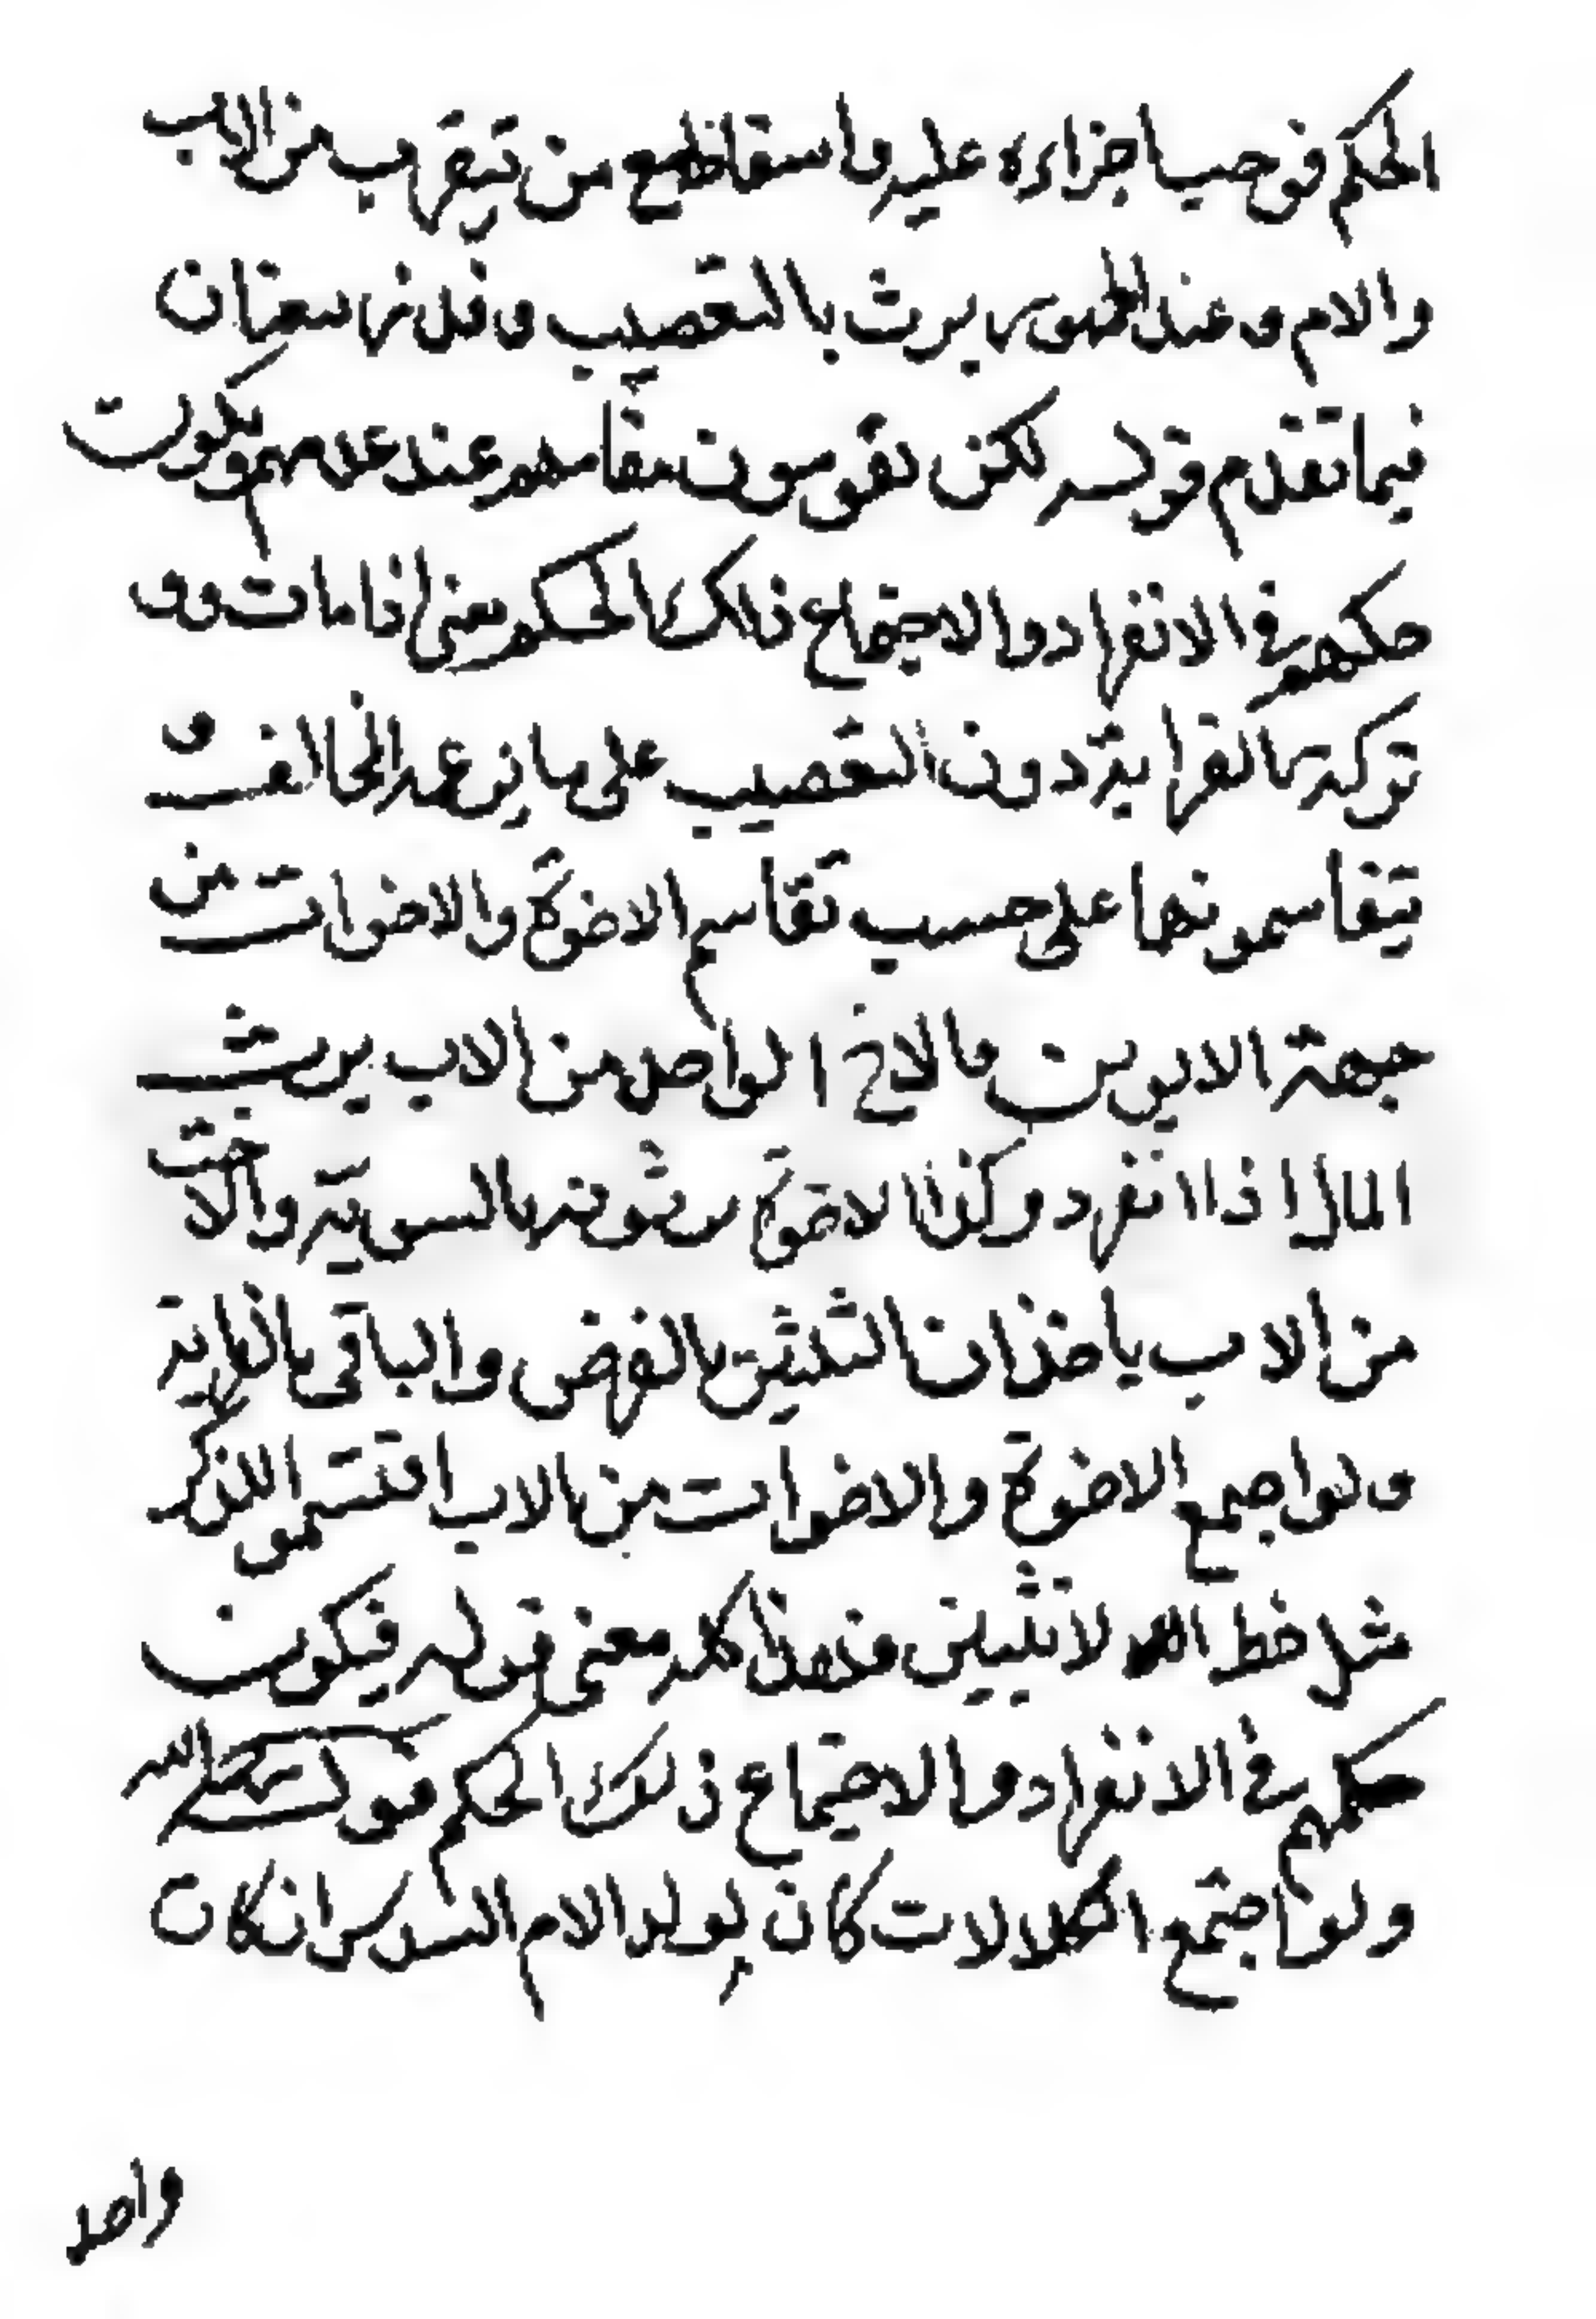 الحكم فوجب اجزاءه عليه واسقاطهم مع من يتقرب من الاب
والام وعند الجمهور يرث بالتعصيب وقد زيفناه
فيما تقدم قوله لكن يقومون مقامهم عند عدمهم ويكون
حكمهم في الانفراد والاجتماع ذلك الحكم يعني اذا مات
تركة بالقرابة دون التعصيب على ما يزعمه المخالف و
يتقاسمونها على حسب تقاسم الاخوة والاخوات من
جهة الابوين فالاخ الواحد من الاب يرث
المال اذا انفرد وكذا الاخوة يرثونه بالسوية والاخت
من الاب ياخذان الثلثين بالفرض والباقي بالقرابة
ولو اجتمع الاخوة والاخوات من الاب اقتسموا للذكر
مثل حظ الانثيين فهذا كله معنى قوله فيكون
حكمهم في الانفراد والاجتماع ذلك الحكم قوله رحمه الله
ولو اجتمع الكلالات كان لولد الام السدس ان كان
واحد